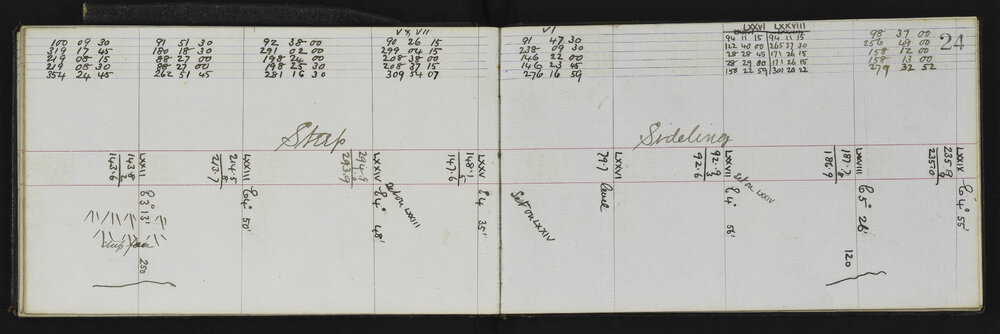 100 09 30
319 17 45
219 08 15
219 08 30
354 24 45
91 51 30
180 18 30
88 27 00
88 27 00
262 51 45
92 38 00
291 02 00
198 24 00
198 25 30
281 16 30
V & VII
90 26 15
299 04 15
208 38 00
208 37 15
309 34 07
VI
91 47 30
238 09 30
146 22 00
146 23 45
276 16 59
LXXVI LXXVIII
94 11 15 94 11 15
122 40 00 265 37 30
28 28 45 171 26 15
28 29 00 171 26 15
158 22 59 301 20 22
98 37 00
256 49 00
158 12 00
158 13 00
279 32 52
24
Steep
Sideling
LXXII
143.8
2
143.6
E 3° 13'
250
LXXIII
214.5
8
213.7
E 4° 50'
LXXIV
294.9
293.9
Set on LXXIII
E 4° 48'
LXXV
148.1
5
147.6
E 4 35'
Set on LXXIV
LXXVI
79.7
Level
LXXVII
92.9
3
92.6
Set on LXXIV
E 4° 56'
LXXVIII
187.7
8
186.9
E 5° 26'
120
LXXIX
235.8
8
235.0
E 4° 55'